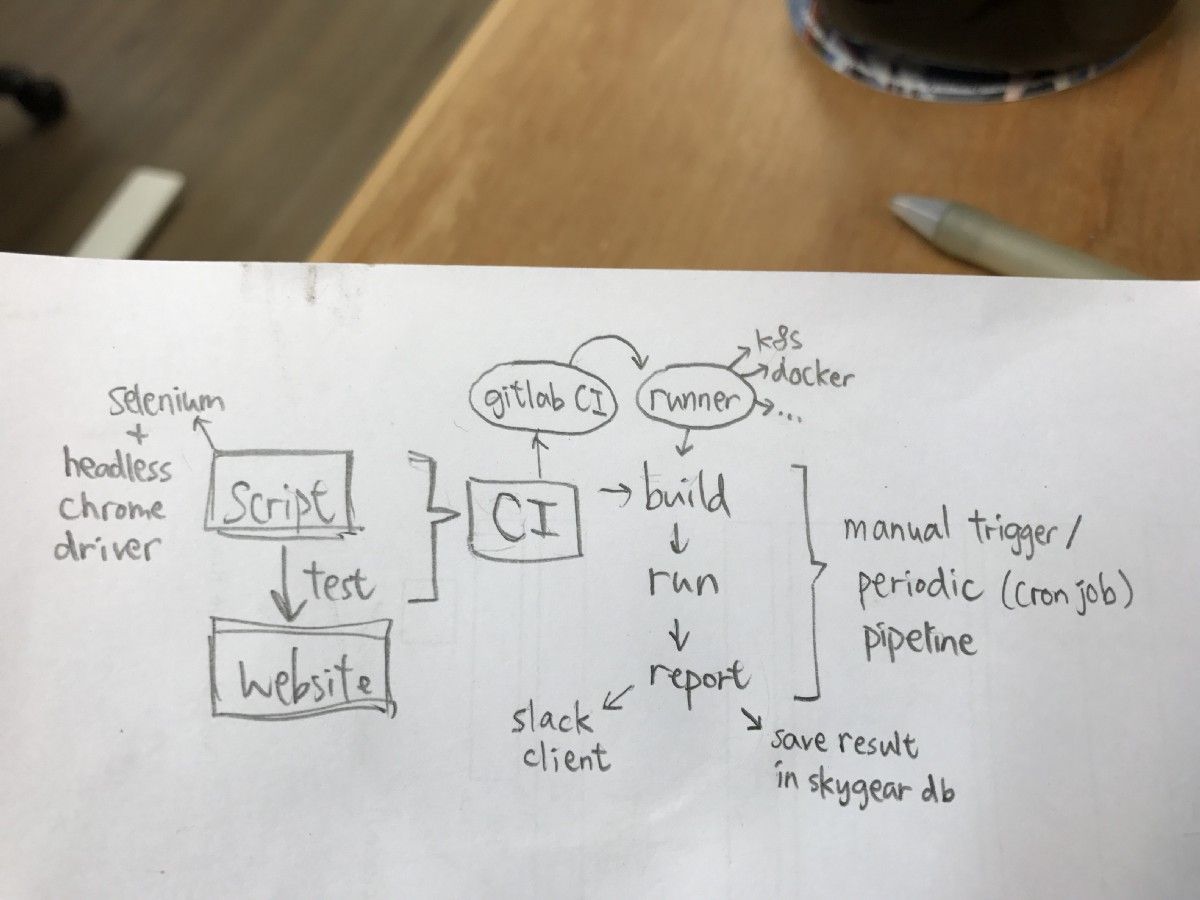 selenium
+
headless
chrome
driver
Script
test
website
gitlab CI
runner
k8s
docker
...
CI
build
run
report
slack
client
save result
in skygear db
manual trigger/
periodic (cron job)
pipeline